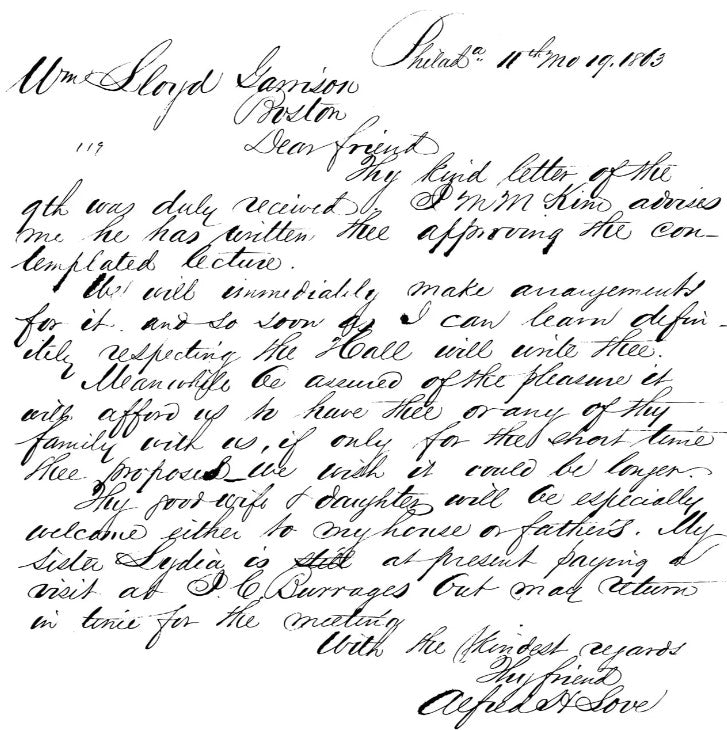 Philada. 11th Mo 19. 1863
Wm. Lloyd Garrison
Boston
119
Dear friend
Thy kind letter of the
9th was duly received. J M McKim advises
me he has written thee approving the con-
templated lecture.
We will immediately make arrangements
for it. and so soon as I can learn defin-
itely respecting the Hall will write thee.
Meanwhile be assured of the pleasure it
will afford us to have thee or any of thy
family with us, if only for the short time
thee proposes_we wish it could be longer.
Thy good wife & daughter will be especially
welcome either to my house or father's. My
sister Lydia is still at present paying a
visit at J. C. Burrages but may return
in time for the meeting
With the kindest regards
Thy friend
Alfred H Love